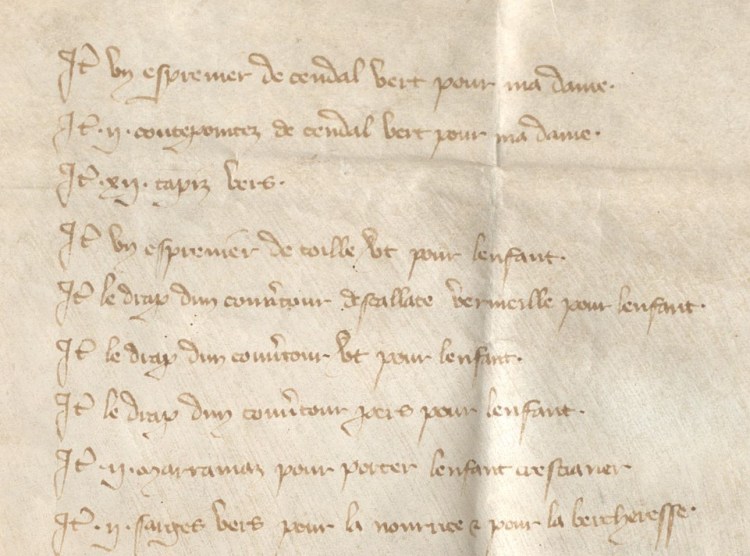 It vn esprevier de cendal vert pour ma dame.
It .ij. coutepointez de cendal vert pour ma dame.
It .xij. tapiz vers.
It vn esprevier de toille vt pour lenfant.
It le drap dun couvtour descallate vermeille pour lenfant.
It le drap dun couvtour vt pour lenfant.
It le drap dun couvtour pers pour lenfant.
It .ij. marramaz pour porter lenfant crestiener
It .ij. sarges vers pour la nourrice & pour la bercheresse.